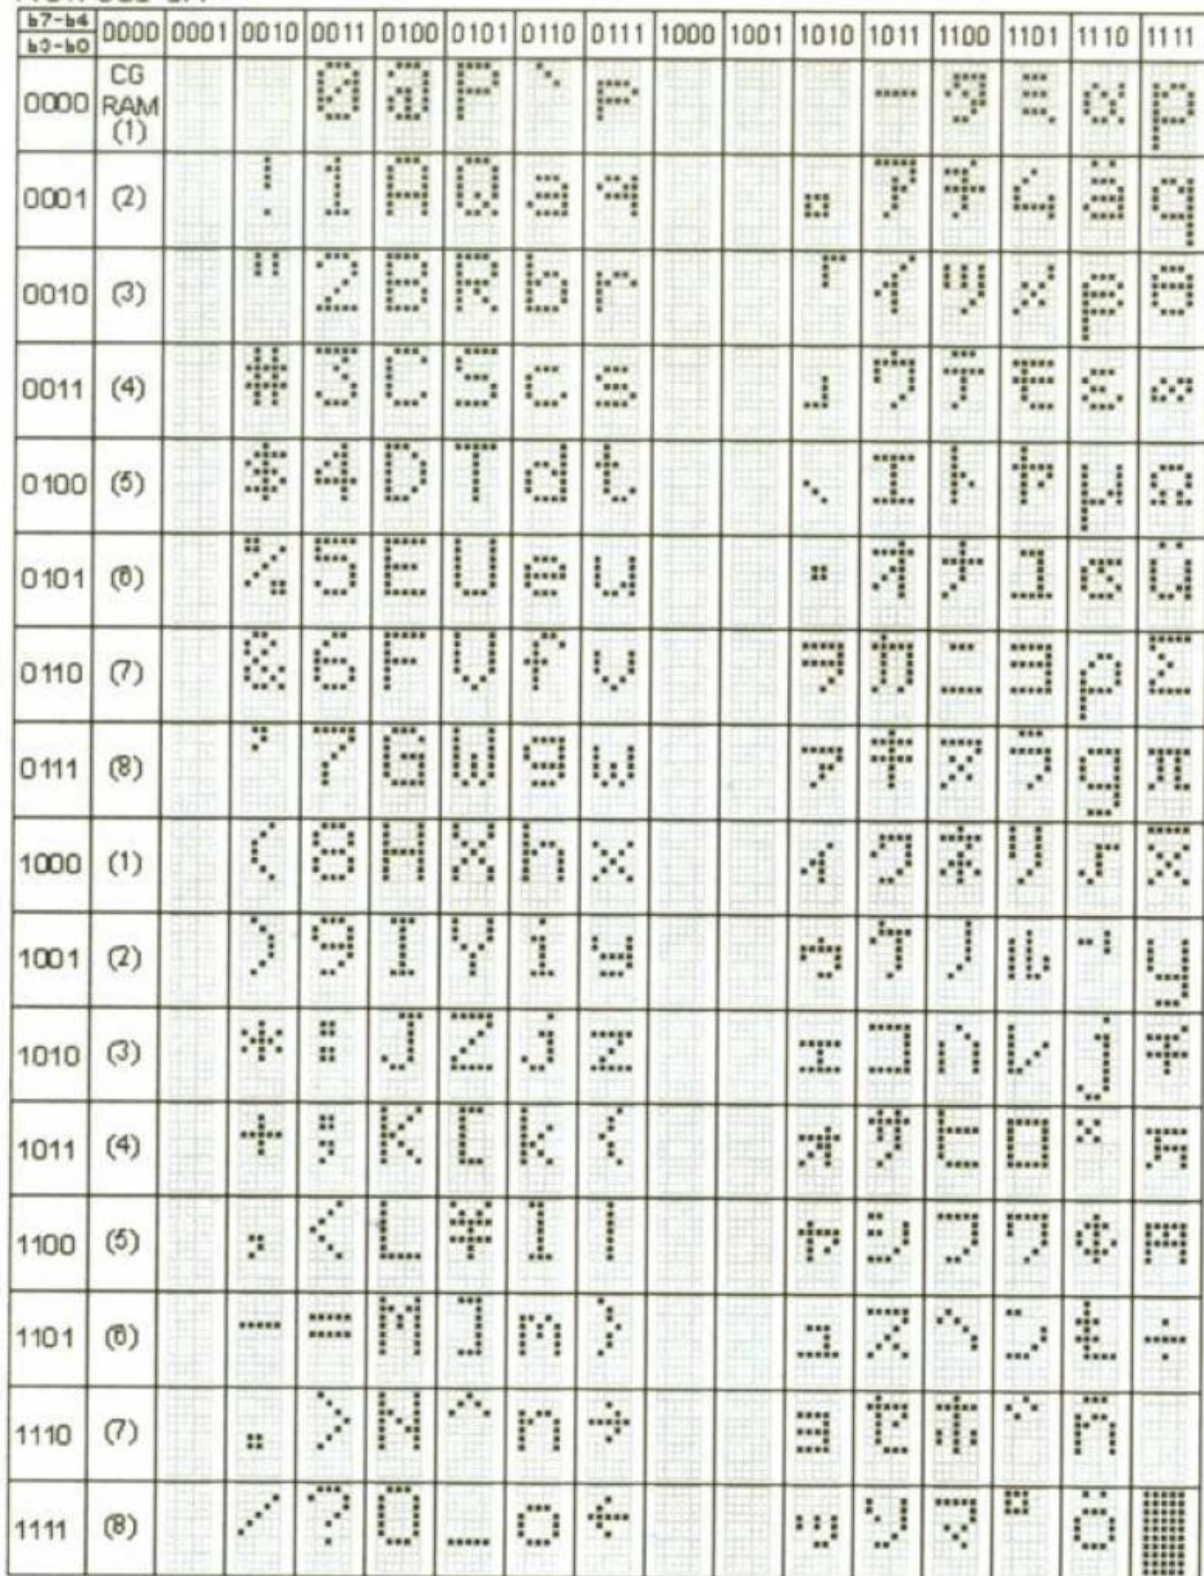 b7-b4 0000 0001 0010 0011 0100 0101 0110 0111 1000 1001 1010 1011 1100 1101 1110 1111
b3-b0
0000 CG RAM (1) 0 @ P ` p ー タ ミ α p
0001 (2) ! 1 A Q a q 。 ア チ ム ä q
0010 (3) " 2 B R b r 「 イ ツ メ β θ
0011 (4) # 3 C S c s 」 ウ テ モ ε ∞
0100 (5) $ 4 D T d t 、 エ ト ヤ μ Ω
0101 (6) % 5 E U e u ・ オ ナ ユ ü
0110 (7) & 6 F V f v ヲ カ ニ ヨ ρ Σ
0111 (8) ' 7 G W g w ァ キ ヌ ラ g π
1000 (1) ( 8 H X h x ィ ク ネ リ √ x̄
1001 (2) ) 9 I Y i y ゥ ケ ノ ル ⁻¹ y
1010 (3) * : J Z j z ェ コ ハ レ j 千
1011 (4) + ; K [ k { ォ サ ヒ ロ ˣ 万
1100 (5) , < L ¥ l | ャ シ フ ワ 円
1101 (6) - = M ] m } ュ ス ヘ ン ÷
1110 (7) . > N ^ n → ョ セ ホ ゛ ñ
1111 (8) / ? O _ o ← ッ ソ マ ゜ ö █